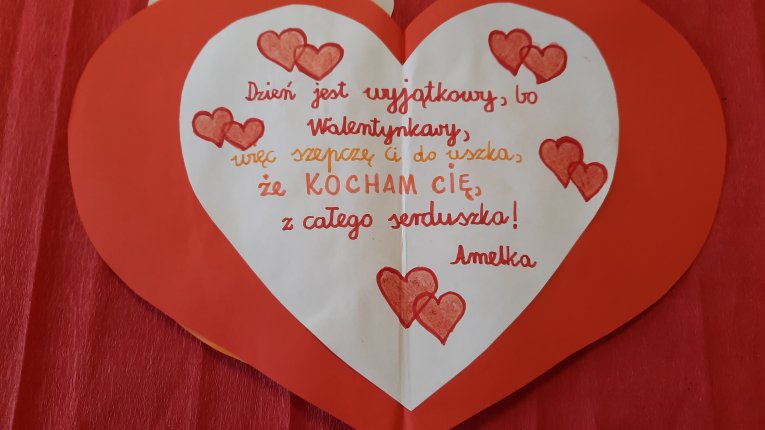 Dzień jest wyjątkowy, bo
Walentynkawy,
więc szepczę ci do uszka,
że KOCHAM CIĘ,
z całego serduszka!
Amelka